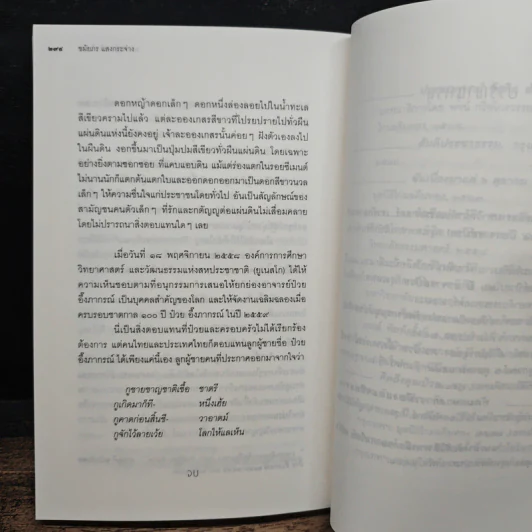 ๒๙๔ ชมัยภร แสงกระจ่าง
ดอกหญ้าดอกเล็กๆ ดอกหนึ่งล่องลอยไปในน้ำทะเล
สีเขียวครามไปแล้ว แต่ละอองเกสรสีขาวที่โปรยปรายไปทั่วผืน
แผ่นดินแห่งนี้ยังคงอยู่ เจ้าละอองเกสรนั้นค่อยๆ ฝังตัวเองลงไป
ในผืนดิน งอกขึ้นมาเป็นปุ่มปมสีเขียวทั่วผืนแผ่นดิน โดยเฉพาะ
อย่างยิ่งตามซอกซอย ที่แคบแออัด แม้แต่ร่องแตกในรอยซีเมนต์
ไม่นานนักก็แตกต้นแตกใบและออกดอกออกมาเป็นดอกสีขาวนวล
เล็กๆ ให้ความชื่นใจแก่ประชาชนโดยทั่วไป อันเป็นสัญลักษณ์ของ
สามัญชนคนตัวเล็กๆ ที่รักและกตัญญูต่อแผ่นดินไม่เสื่อมคลาย
โดยไม่ปรารถนาสิ่งตอบแทนใดๆ เลย
เมื่อวันที่ ๑๘ พฤศจิกายน ๒๕๕๘ องค์การการศึกษา
วิทยาศาสตร์ และวัฒนธรรมแห่งสหประชาชาติ (ยูเนสโก) ได้ให้
ความเห็นชอบตามที่อนุกรรมการเสนอให้ยกย่องอาจารย์ป๋วย
อึ๊งภากรณ์ เป็นบุคคลสำคัญของโลก และให้จัดงานเฉลิมฉลองเมื่อ
ครบรอบชาตกาล ๑๐๐ ปี ป๋วย อึ๊งภากรณ์ ในปี ๒๕๕๙
นี่เป็นสิ่งตอบแทนที่ป๋วยและครอบครัวไม่ได้เรียกร้อง
ต้องการ แต่คนไทยและประเทศไทยก็ตอบแทนลูกผู้ชายชื่อ ป๋วย
อึ๊งภากรณ์ ได้เพียงแค่นี้เอง ลูกผู้ชายคนที่ประกาศออกมาจากใจว่า
กูชายชาญชาติเชื้อ ชาตรี
กูเกิดมาก็ที- หนึ่งเฮ้ย
กูคาดก่อนสิ้นชี- วาอาตม์
กูจักไว้ลายเว้ย โลกให้แลเห็น